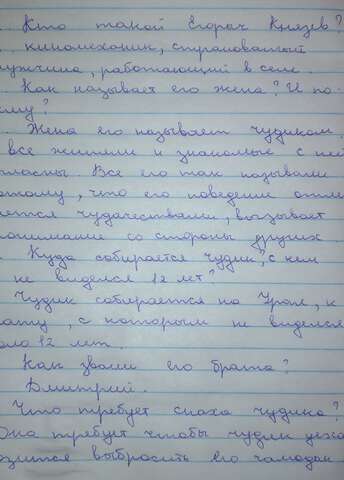 . Кто такой Егорач Князев?
. киномеханик, странноватый
мужчина, работающий в селе.
. Как называет его жена? И по-
ему?
. Жена его называет чудиком,
все жители и знакомые с ней
гласны. Все его так называли
потому, что его поведение отли
ается чудачествами, вызывает
понимание со стороны других.
. Куда собирается чудик?, с кем
не виделся 12 лет?
Чудик собирается на Урал, к
рату, с которым не виделся
оло 12 лет.
Как звали его брата?
Дмитрий.
Что требует сноха чудика?
Она требует чтобы чудик уеха
озится выбросить его чемодан